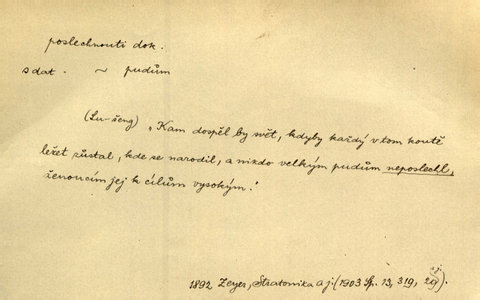 poslechnouti dok.
s dat. ~ pudům
(Lu-šeng) „Kam dospěl by svět, kdyby každý v tom koutě
ležet zůstal, kde se narodil, a nikdo velkým pudům neposlechl,
ženoucím jej k cílům vysokým.“
1892 Zeyer, Stratonika a j. (1903 Sp. 13, 319, 29).